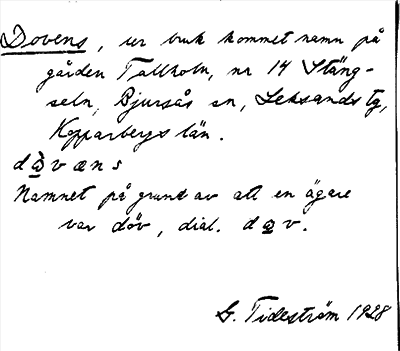 Dovens, ur bruk kommet namn på
gården Tallholn, nr 14 Stäng-
seln, Bjursås sn, Leksands tg,
Kopparbergs län.
dàvæns
Namnet på grund av att en ägare
var döv, dial. dav.
G. Tideström 1928